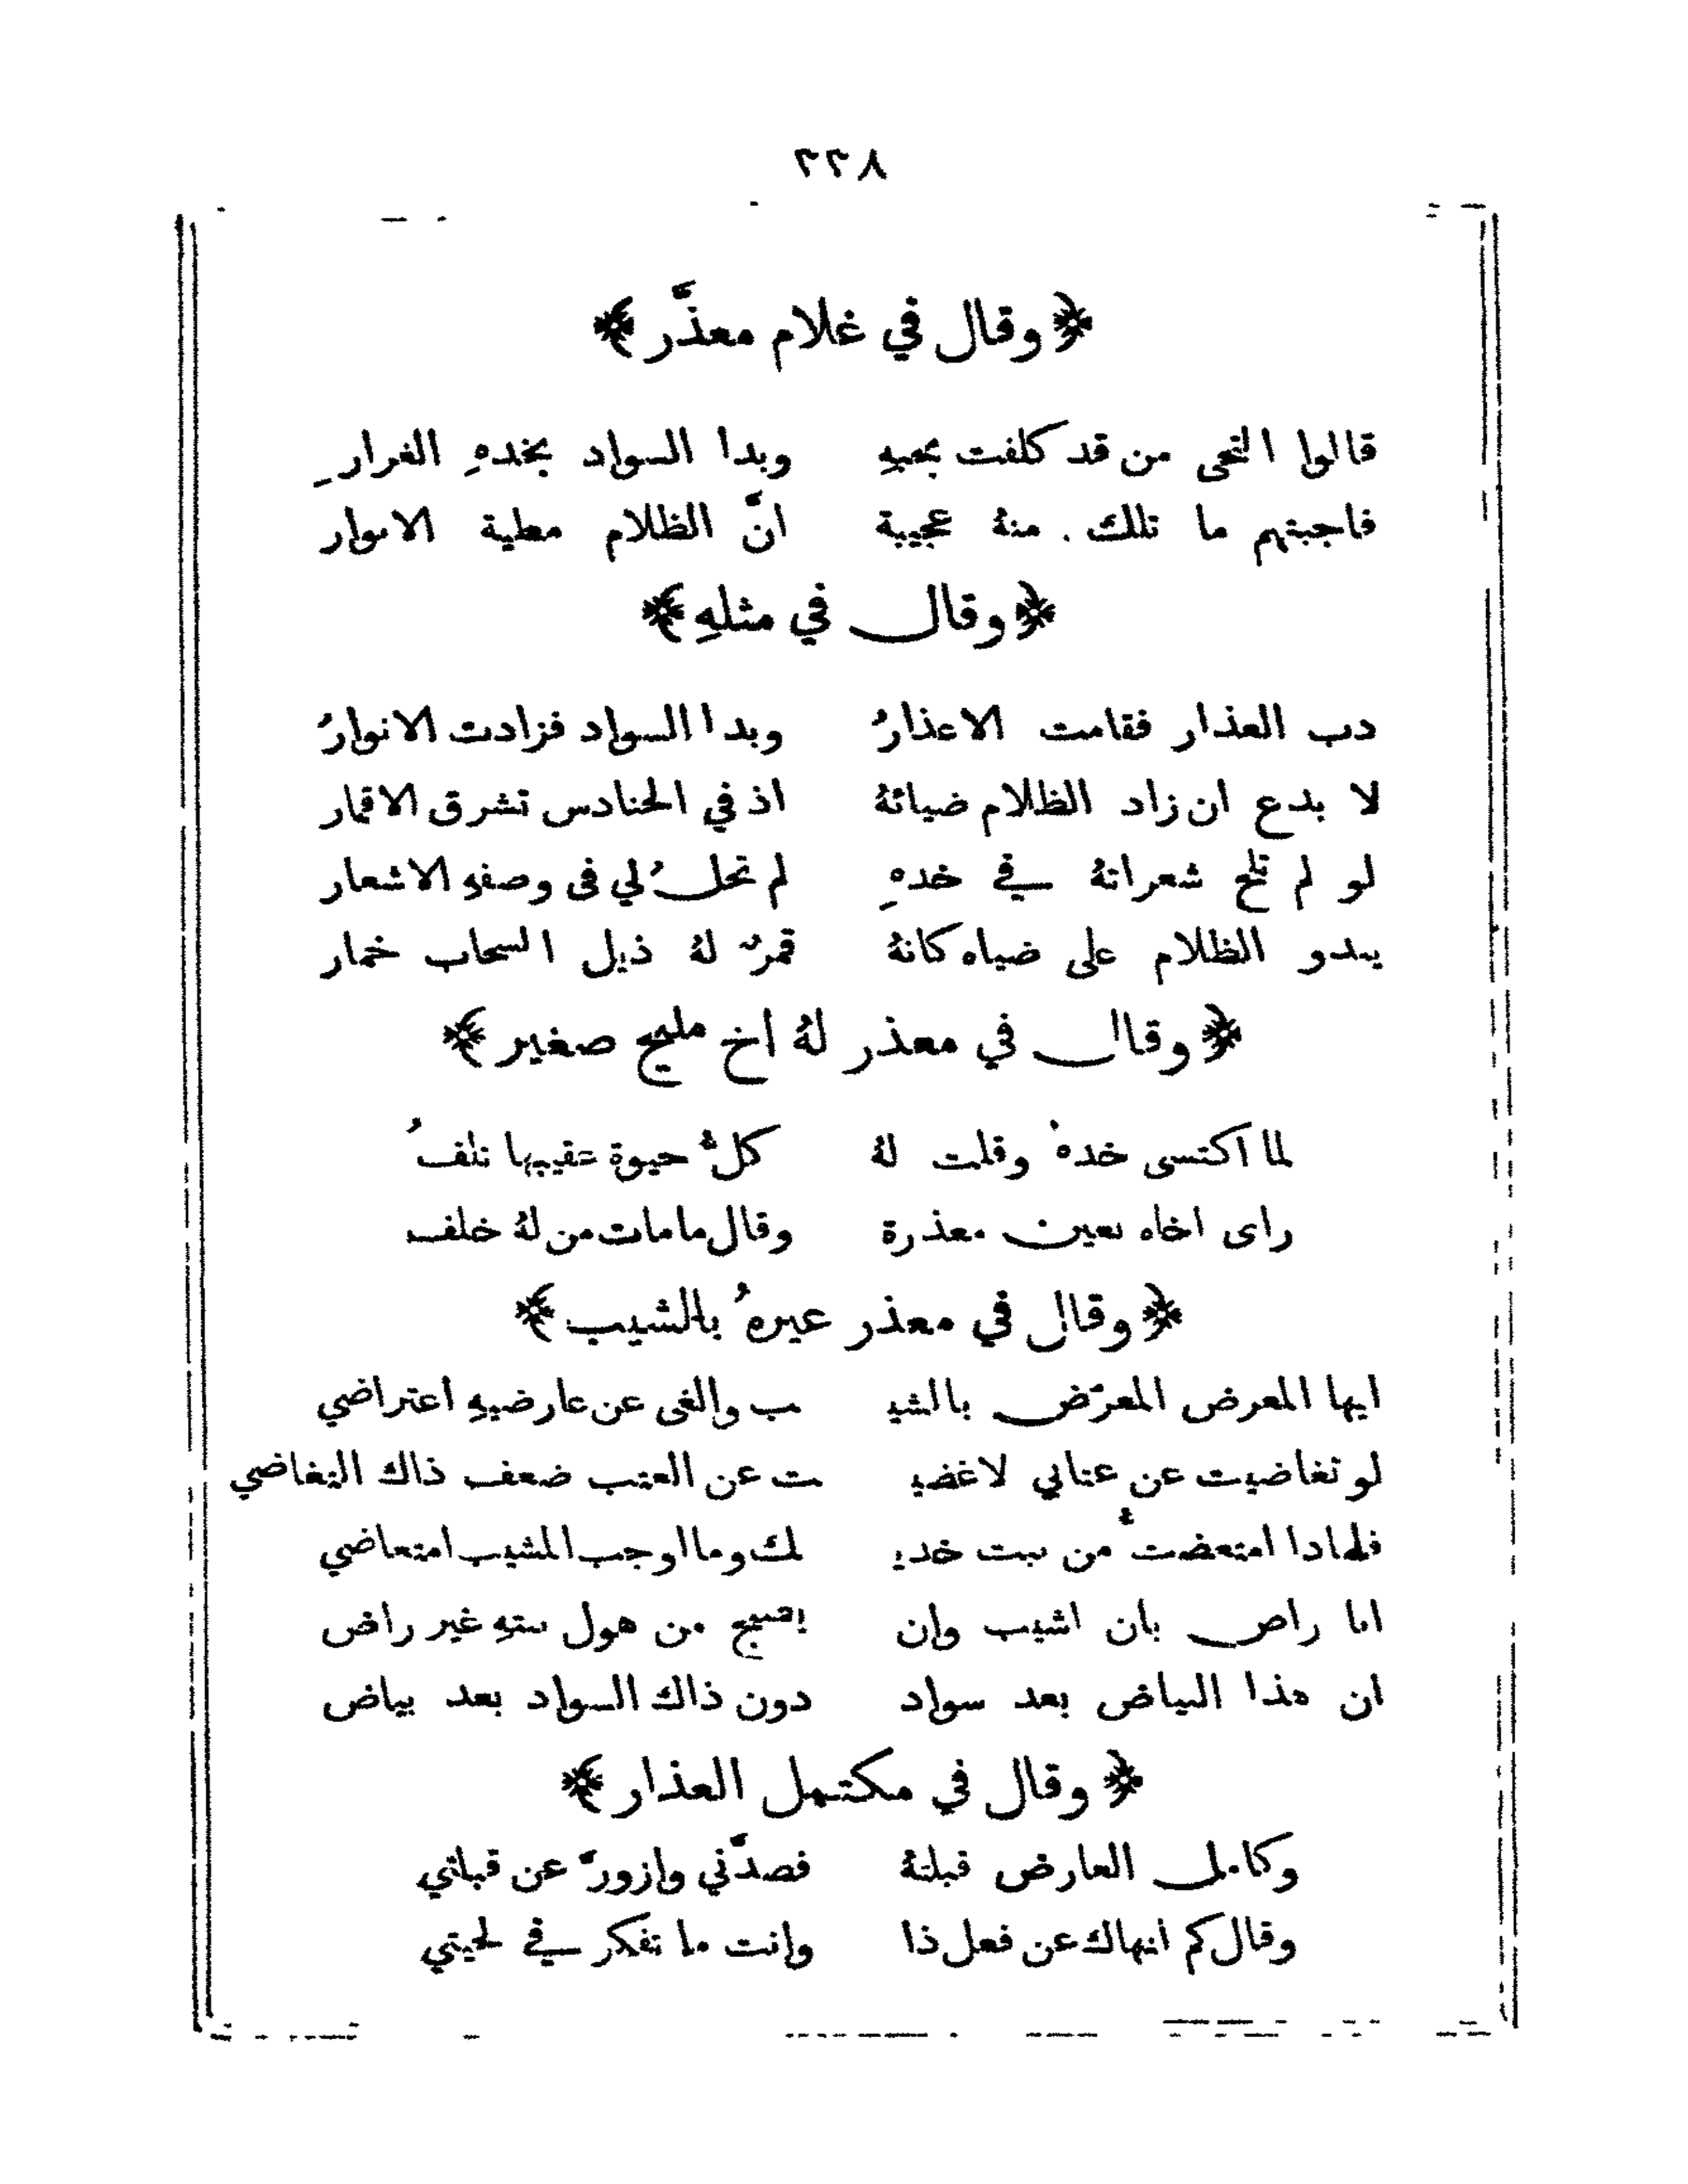 ٢٢٨
﴿ وقال في غلام معذَّر ﴾
قالوا التحى من قد كلفت بحبهِ وبدا السواد بخدهِ الغرارِ
فاجبتهم ما تلك منهُ عجيبة انَّ الظلام مطية الانوار
﴿ وقال في مثلهِ ﴾
دب العذار فقامت الاعذارُ وبدا السواد فزادت الانوارُ
لا بدع ان زاد الظلام ضيائهُ اذ في الحنادس تشرق الاقمار
لو لم تلح شعراتهُ في خدهِ لم تحلُ لي في وصفهِ الاشعار
يبدو الظلام على ضياه كانهُ قمرٌ لهُ ذيل السحاب خمار
﴿ وقال في معذر لهُ اخ مليح صغير ﴾
لما اكتسى خدهُ وقلت لهُ كلُّ حيوة عقيبها تلفُ
راى اخاه بعين معذرة وقال ما مات من لهُ خلف
﴿ وقال في معذر عيرهُ بالشيب ﴾
ايها المعرض المعرّض بالشيـ ـب والغى عن عارضيهِ اعتراضي
لو تغاضيت عن عتابي لاغضيـ ـت عن العتب ضعف ذاك التغاضي
فلماذا امتعضت من نبت خديـ ـك وما اوجب المشيب امتعاضي
انا راض بان اشيب وان يصبح من هول نبته غير راض
ان هذا البياض بعد سواد دون ذاك السواد بعد بياض
﴿ وقال في مكتهل العذار ﴾
وكامل العارض قبلتهُ فصدَّني وازورَّ عن قبلتي
وقال كم انهاك عن فعل ذا وانت ما تفكر في لحيتي